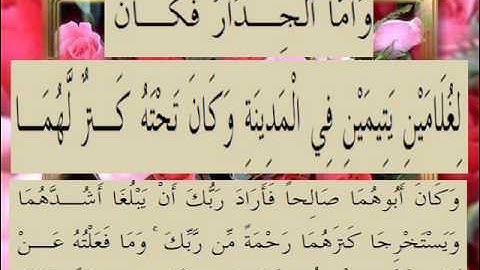 وَأَمَّا الْجِدَارُ فَكَانَ
لِغُلَامَيْنِ يَتِيمَيْنِ فِي الْمَدِينَةِ وَكَانَ تَحْتَهُ كَنزٌ لَّهُمَا
وَكَانَ أَبُوهُمَا صَالِحاً فَأَرَادَ رَبُّكَ أَنْ يَبْلُغَا أَشُدَّهُمَا
وَيَسْتَخْرِجَا كَنزَهُمَا رَحْمَةً مِّن رَّبِّكَ ۚ وَمَا فَعَلْتُهُ عَنْ